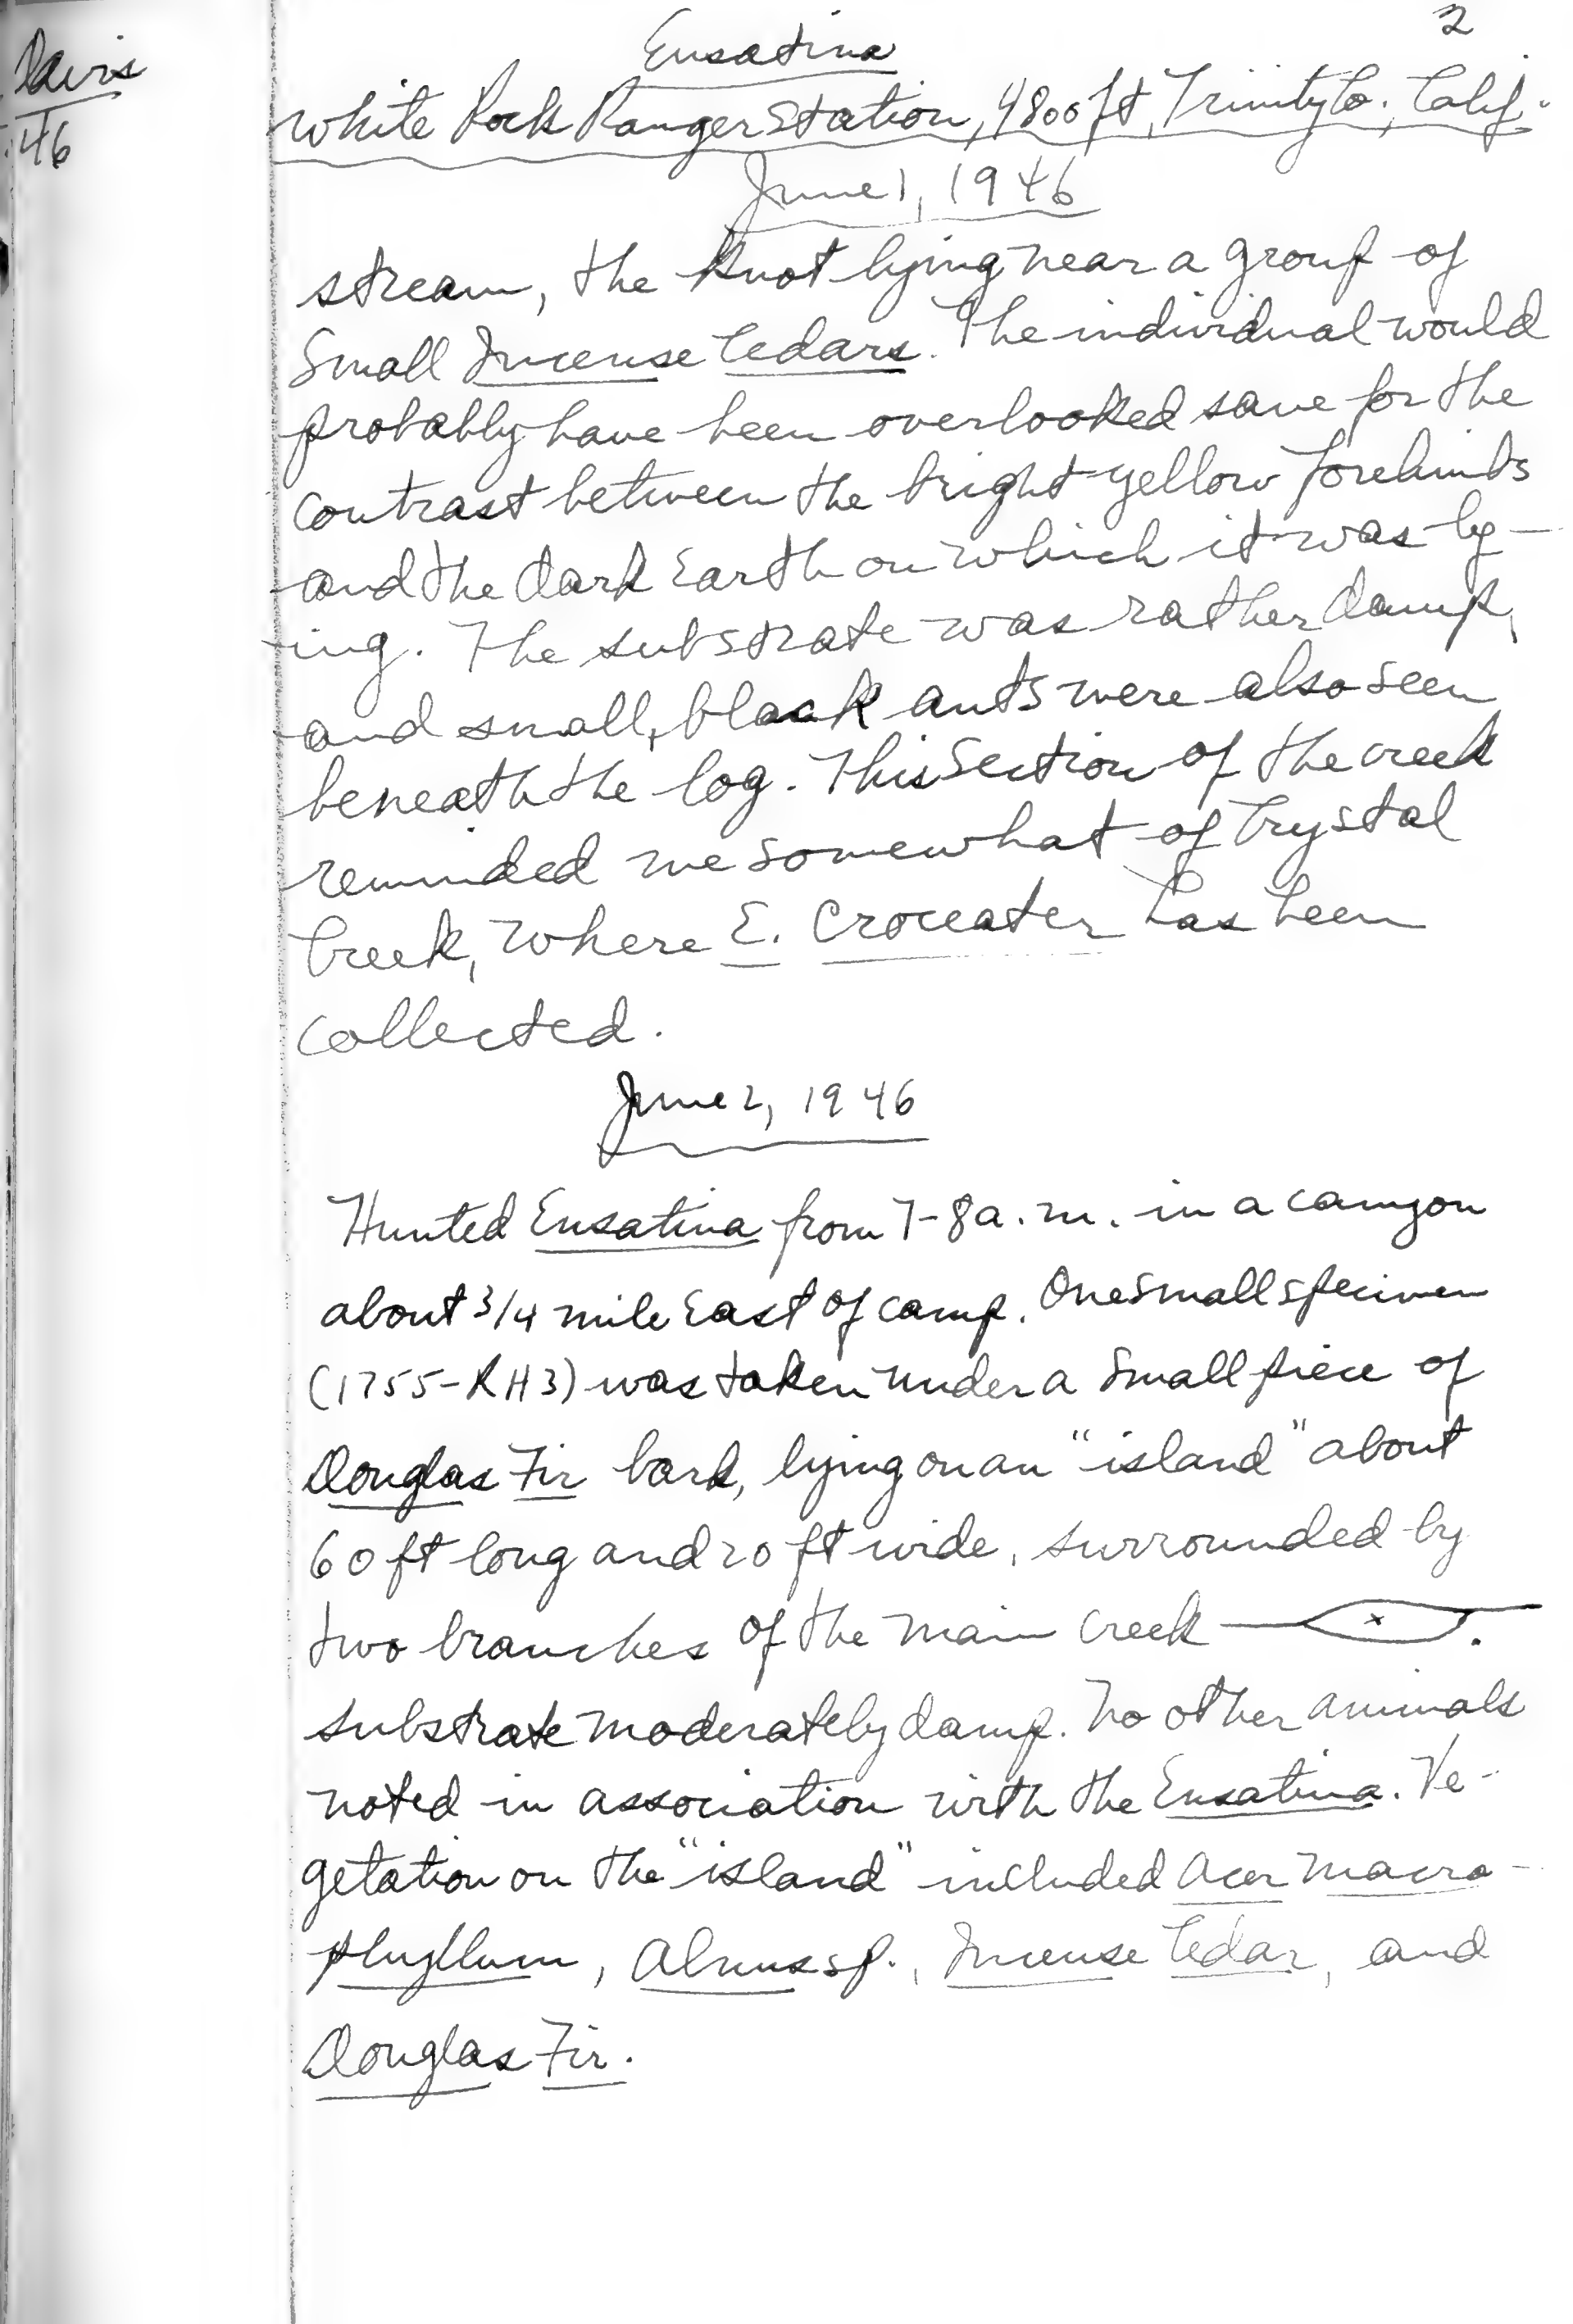 Davis
46
2
Ensatina
White Rock Ranger Station, 4800 ft, Trinity Co., Calif.
June 1, 1946
stream, the knot lying near a group of
small Incense Cedars. The individual would
probably have been overlooked save for the
contrast between the bright yellow forelimbs
and the dark earth on which it was ly-
ing. The substrate was rather damp,
and small, black ants were also seen
beneath the log. This section of the creek
reminded me somewhat of Crystal
Creek, where E. croceater has been
collected.
June 2, 1946
Hunted Ensatina from 7-8 a.m. in a canyon
about 3/4 mile east of camp. One small specimen
(1755-RH3) was taken under a small piece of
Douglas Fir bark, lying on an "island" about
60 ft long and 20 ft wide, surrounded by
two branches of the main creek x .
substrate moderately damp. No other animals
noted in association with the Ensatina. Ve-
getation on the "island" included Acer macro-
phyllum, Alnus sp., Incense Cedar, and
Douglas Fir.